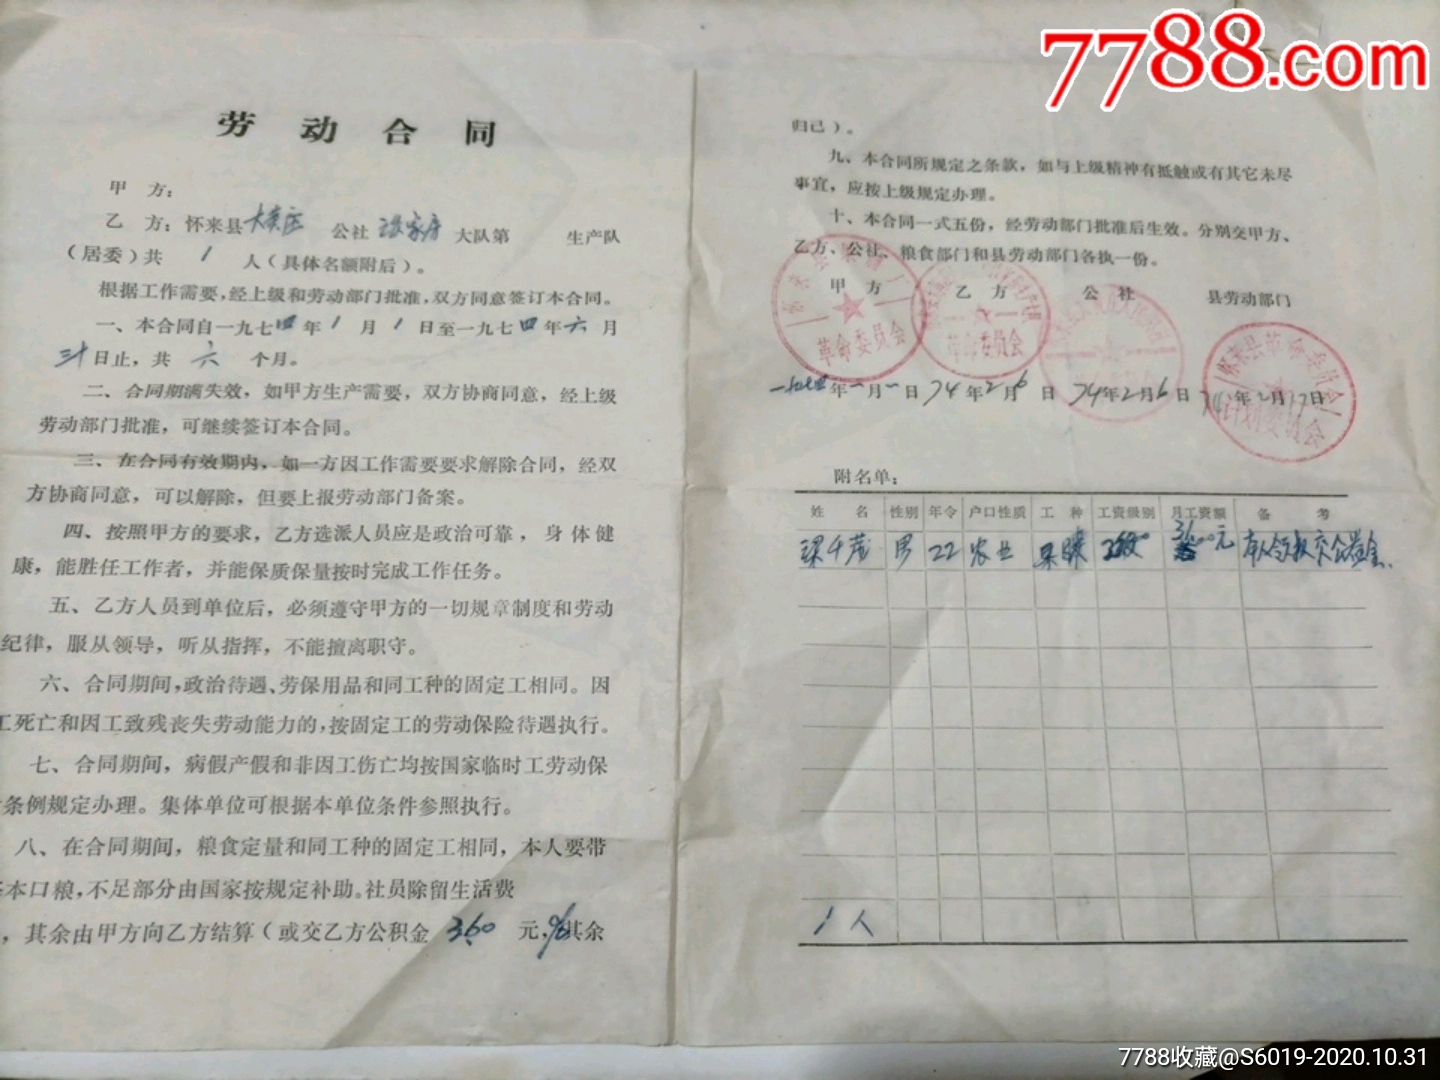 7788.com
劳动合同
甲方：
乙方：怀来县 公社 大队第 生产队
（居委）共 1 人（具体名额附后）。
根据工作需要，经上级和劳动部门批准，双方同意签订本合同。
一、本合同自一九七四年1月1日至一九七四年六月
三十日止，共六个月。
二、合同期满失效，如甲方生产需要，双方协商同意，经上级
劳动部门批准，可继续签订本合同。
三、在合同有效期内，如一方因工作需要要求解除合同，经双
方协商同意，可以解除，但要上报劳动部门备案。
四、按照甲方的要求，乙方选派人员应是政治可靠，身体健
康，能胜任工作者，并能保质保量按时完成工作任务。
五、乙方人员到单位后，必须遵守甲方的一切规章制度和劳动
纪律，服从领导，听从指挥，不能擅离职守。
六、合同期间，政治待遇、劳保用品和同工种的固定工相同。因
工死亡和因工致残丧失劳动能力的，按固定工的劳动保险待遇执行。
七、合同期间，病假产假和非因工伤亡均按国家临时工劳动保
条例规定办理。集体单位可根据本单位条件参照执行。
八、在合同期间，粮食定量和同工种的固定工相同，本人要带
本口粮，不足部分由国家按规定补助。社员除留生活费
，其余由甲方向乙方结算（或交乙方公积金 元，其余
归己）。
九、本合同所规定之条款，如与上级精神有抵触或有其它未尽
事宜，应按上级规定办理。
十、本合同一式五份，经劳动部门批准后生效。分别交甲方、
乙方、公社、粮食部门和县劳动部门各执一份。
甲方 乙方 公社 县劳动部门
革命委员会 革命委员会 怀来县革命委员会 计划委员会
一九七四年一月一日 74年2月6日 74年2月6日 74年2月17日
附名单：
姓名 性别 年令 户口性质 工种 工资级别 月工资额 备考
梁千茂 男 22 农业 元
1人
7788收藏@S6019-2020.10.31